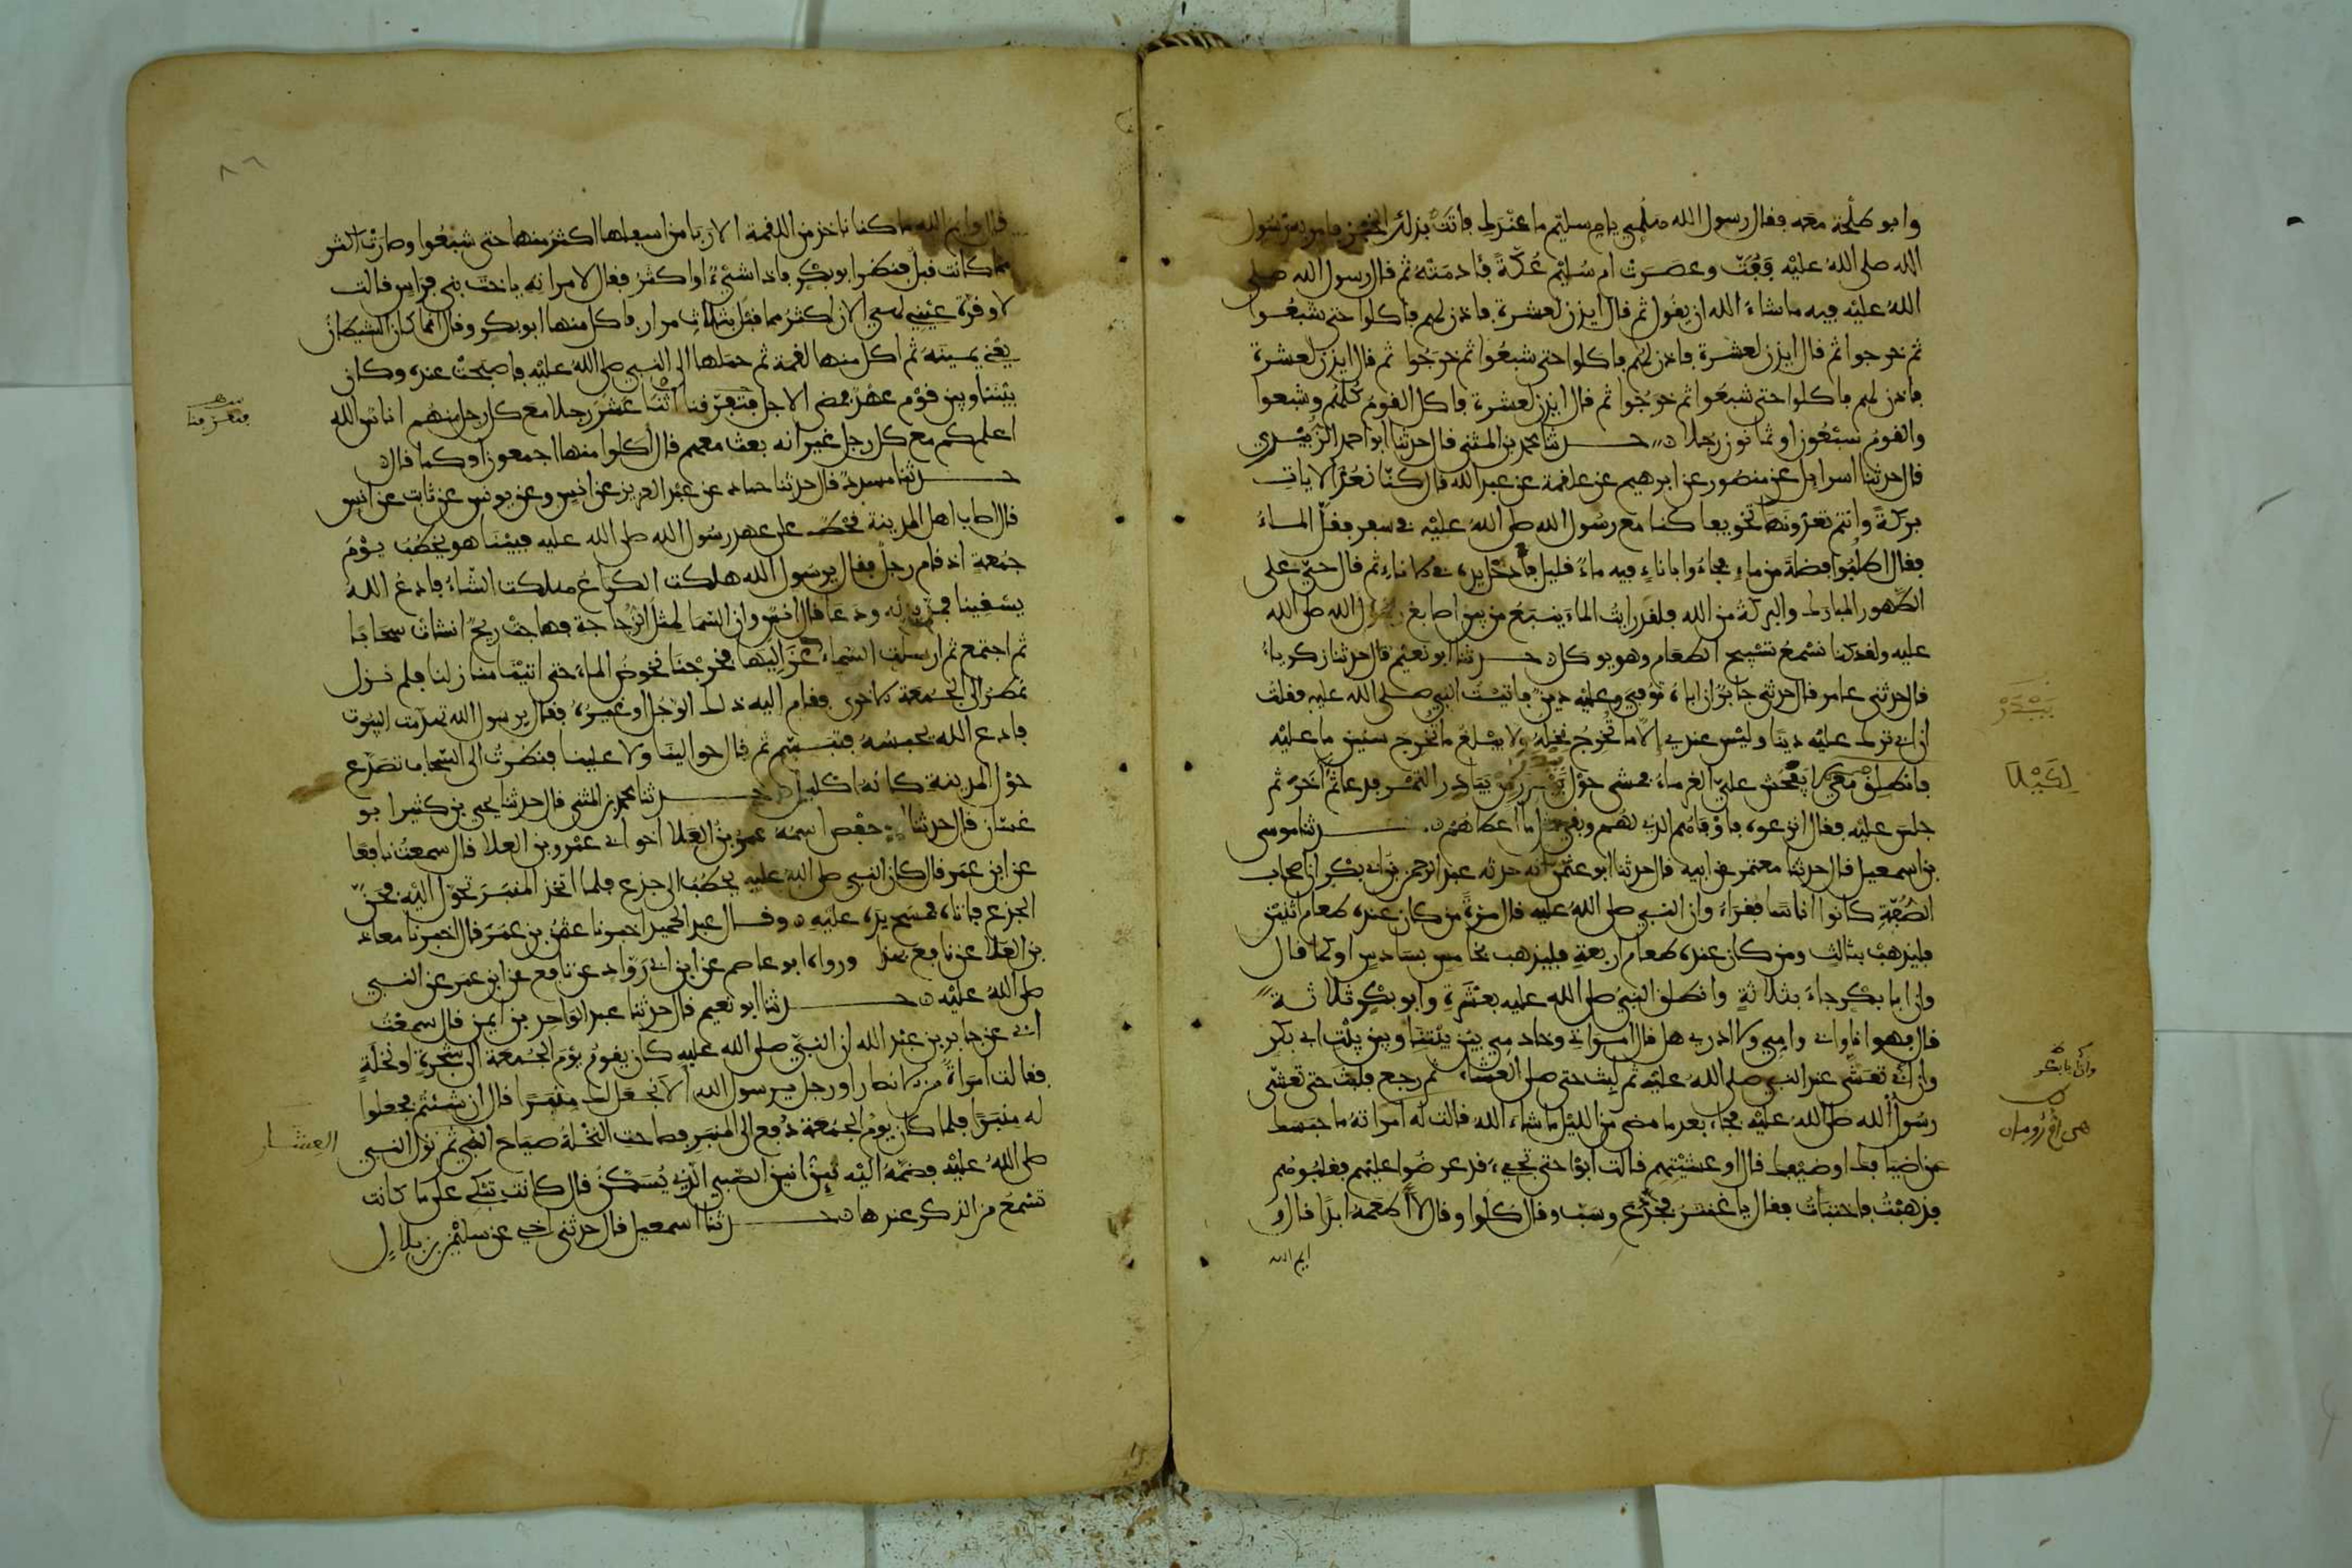 وابو طلحة معه فقال رسول الله هلمي يام سليم ما عندك فاتت بذلك الخبز فامر به رسول
الله صلى الله عليه ففت وعصرت ام سليم عكة فادمته ثم قال رسول الله صلى
الله عليه فيه ما شاء الله ان يقول ثم قال ايذن لعشرة فاذن لهم فاكلوا حتى شبعوا
ثم خرجوا ثم قال ايذن لعشرة فاذن لهم فاكلوا حتى شبعوا ثم خرجوا ثم قال ايذن لعشرة
فاذن لهم فاكلوا حتى شبعوا ثم خرجوا ثم قال ايذن لعشرة فاكل القوم كلهم وشبعوا
والقوم سبعون او ثمانون رجلا حدثنا محمد بن المثنى قال حدثنا ابو احمد الزبيري
قال حدثنا اسرايل عن منصور عن ابرهيم عن علقمة عن عبد الله قال كنا نعد الايات
بركة وانتم تعدونها تخويفا كنا مع رسول الله صلى الله عليه في سفر فقل الماء
فقال اطلبوا فضلة من ماء فجاءوا باناء فيه ماء قليل فادخل يده في الاناء ثم قال حي على
الطهور المبارك والبركة من الله فلقد رايت الماء ينبع من بين اصابع رسول الله صلى الله
عليه ولقد كنا نسمع تسبيح الطعام وهو يوكل حدثنا ابو نعيم قال حدثنا زكرياء
قال حدثني عامر قال حدثني جابر ان اباه توفي وعليه دين فاتيت النبي صلى الله عليه فقلت
ان ابي ترك عليه دينا وليس عندي الا ما تخرج نخله ولا يبلغ ما تخرج سنين ما عليه
فانطلق معي لا يفحش علي الغرماء فمشى حول بيدر من بيادر التمر فدعا ثم اخر ثم
جلس عليه فقال انزعوه فاوفاهم الذي لهم وبقي مثل ما اعطاهم حدثنا موسى
بن اسمعيل قال حدثنا معتمر عن ابيه قال حدثنا ابو عثمن انه حدثه عبد الرحمن بن ابي بكر ان اصحاب
الصفة كانوا اناسا فقراء وان النبي صلى الله عليه قال مرة من كان عنده طعام اثنين
فليذهب بثالث ومن كان عنده طعام اربعة فليذهب بخامس بسادس او كما قال
وان ابا بكر جاء بثلاثة وانطلق النبي صلى الله عليه بعشرة وابو بكر ثلاثة
قال فهو انا وابي وامي ولا ادري هل قال امراتي وخادمي بين بيتنا وبين بيت ابي بكر
وان ابي تعشى عند النبي صلى الله عليه ثم لبث حتى صلى العشاء ثم رجع فلبث حتى تعشى
رسول الله صلى الله عليه فجاء بعد ما مضى من الليل ما شاء الله قالت له امراته ما حبسك
عن اضيافك او ضيفك قال او عشيتهم قالت ابوا حتى تجيء قد عرضوا عليهم فغلبوهم
فذهبت فاختبات فقال يا غنثر فجدع وسب وقال كلوا وقال لا اطعمه ابدا قال
ايم الله
بيدر
لكيلا
وان ابا بكر
هي ام رومان
٨٦
قال وايم الله ما كنا ناخذ من اللقمة الا ربا من اسفلها اكثر منها حتى شبعوا وصارت اكثر
مما كانت قبل فنظر ابو بكر فاذا شيء او اكثر فقال لامراته يا اخت بني فراس قالت
لا وقرة عيني لهي الان اكثر مما قبل بثلاث مرار فاكل منها ابو بكر وقال انما كان الشيطان
يعني يمينه ثم اكل منها لقمة ثم حملها الى النبي صلى الله عليه فاصبحت عنده وكان
بيننا وبين قوم عهد فمضى الاجل فتعرفنا اثنا عشر رجلا مع كل رجل منهم اناس الله
اعلم كم مع كل رجل غير انه بعث معهم قال اكلوا منها اجمعون او كما قال
حدثنا مسدد قال حدثنا حماد عن عبد العزيز عن انس وعن يونس عن ثابت عن انس
قال اصاب اهل المدينة قحط على عهد رسول الله صلى الله عليه فبينا هو يخطب يوم
جمعة اذ قام رجل فقال يرسول الله هلكت الكراع هلكت الشاء فادع الله
يسقينا فمد يديه ودعا قال انس وان السما لمثل الزجاجة فهاجت ريح انشات سحابا
ثم اجتمع ثم ارسلت السماء عزاليها فخرجنا نخوض الماء حتى اتينا منازلنا فلم نزل
نمطر الى الجمعة الاخرى فقام اليه ذلك الرجل او غيره فقال يرسول الله تهدمت البيوت
فادع الله يحبسه فتبسم ثم قال حوالينا ولا علينا فنظرت الى السحاب تصدع
حول المدينة كانه اكليل حدثنا محمد بن المثنى قال حدثنا يحيى بن كثير ابو
غسان قال حدثنا ابو حفص اسمه عمر بن العلا اخو ابي عمرو بن العلا قال سمعت نافعا
عن ابن عمر قال كان النبي صلى الله عليه يخطب الى جذع فلما اتخذ المنبر تحول اليه فحن
الجذع فاتاه فمسح يده عليه وقال عبد الحميد اخبرنا عثمن بن عمر قال اخبرنا معاذ
بن العلا عن نافع بهذا ورواه ابو عاصم عن ابن ابي رواد عن نافع عن ابن عمر عن النبي
صلى الله عليه حدثنا ابو نعيم قال حدثنا عبد الواحد بن ايمن قال سمعت
ابي عن جابر بن عبد الله ان النبي صلى الله عليه كان يقوم يوم الجمعة الى شجرة او نخلة
فقالت امراة من الانصار او رجل يرسول الله الا نجعل لك منبرا قال ان شئتم فجعلوا
له منبرا فلما كان يوم الجمعة دفع الى المنبر فصاحت النخلة صياح الصبي ثم نزل النبي
صلى الله عليه فضمه اليه يئن انين الصبي الذي يسكن قال كانت تبكي على ما كانت
تسمع من الذكر عندها حدثنا اسمعيل قال حدثني اخي عن سليمن بن بلال
العشار